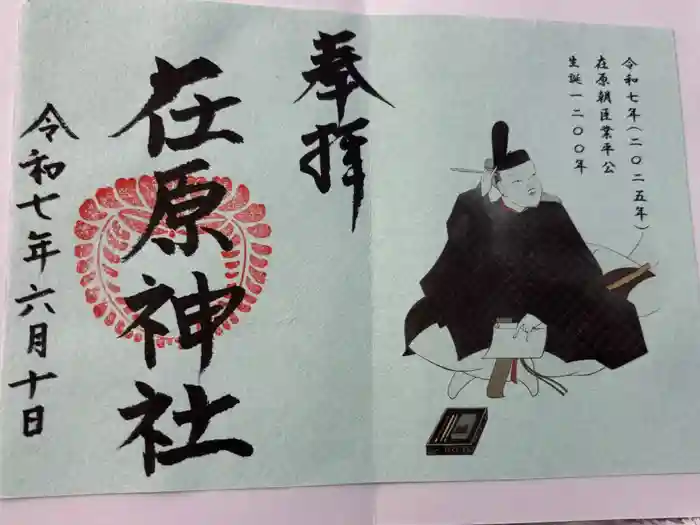 令和七年(二〇二五年)
在原朝臣業平公
生誕一二〇〇年
奉拝
在原神社
令和七年六月十日